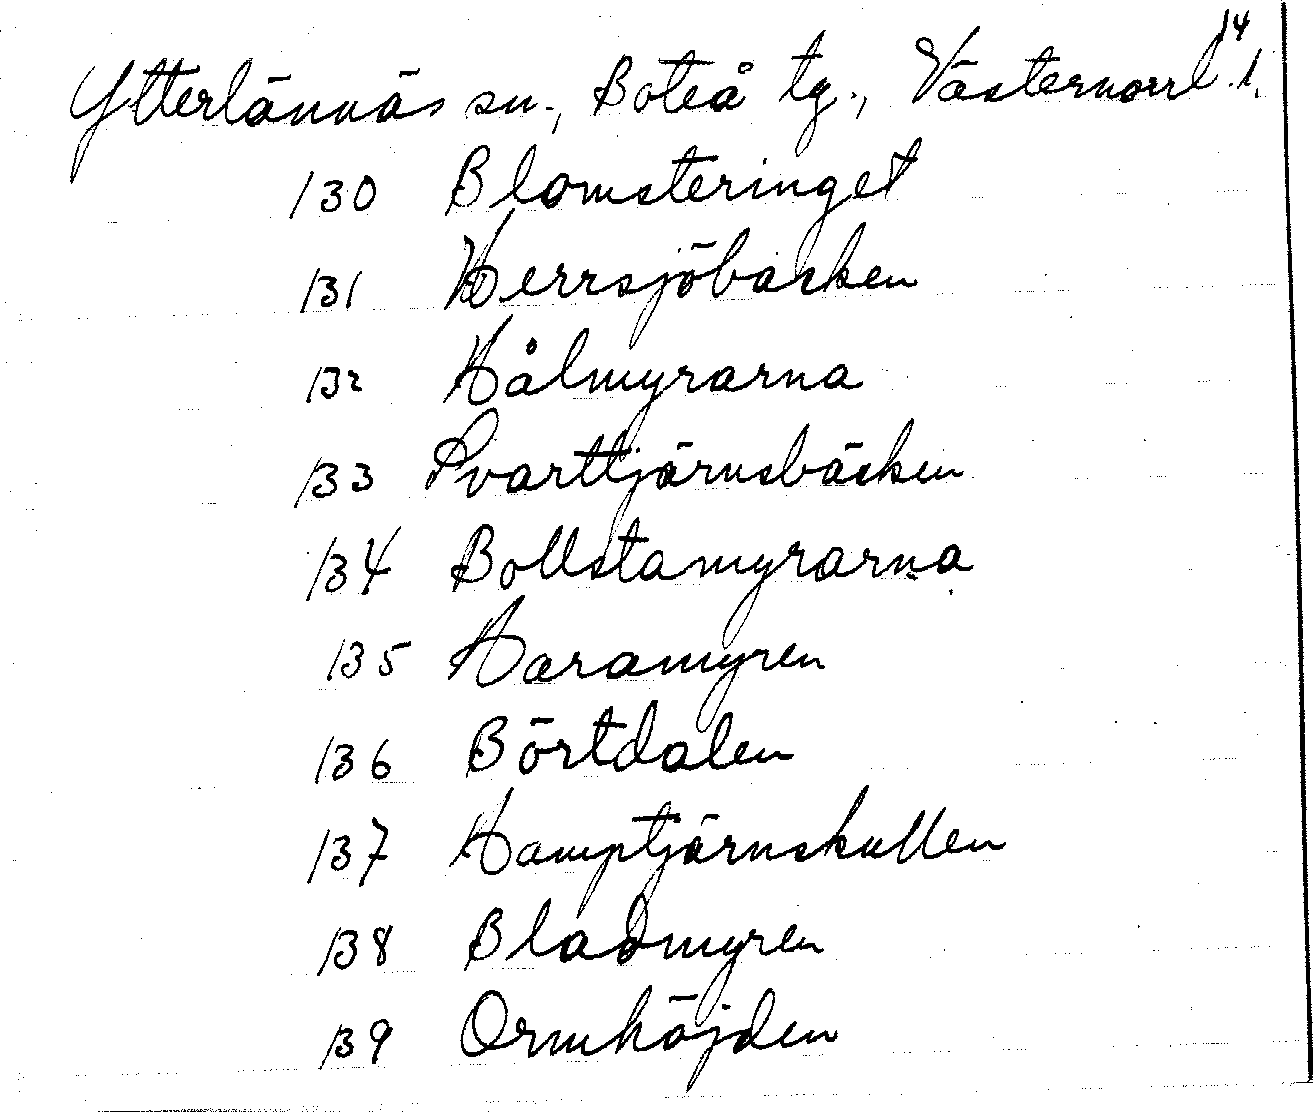 14
Ytterlännäs sn., Boteå tg., Västernorrl. l.
130 Blomsteringet
131 Herrsjöbäcken
132 Hålmyrarna
133 Svarttjärnsbäcken
134 Bollstamyrarna
135 Haramyren
136 Börtdalen
137 Hamptjärnskullen
138 Bladmyren
139 Ormhöjden